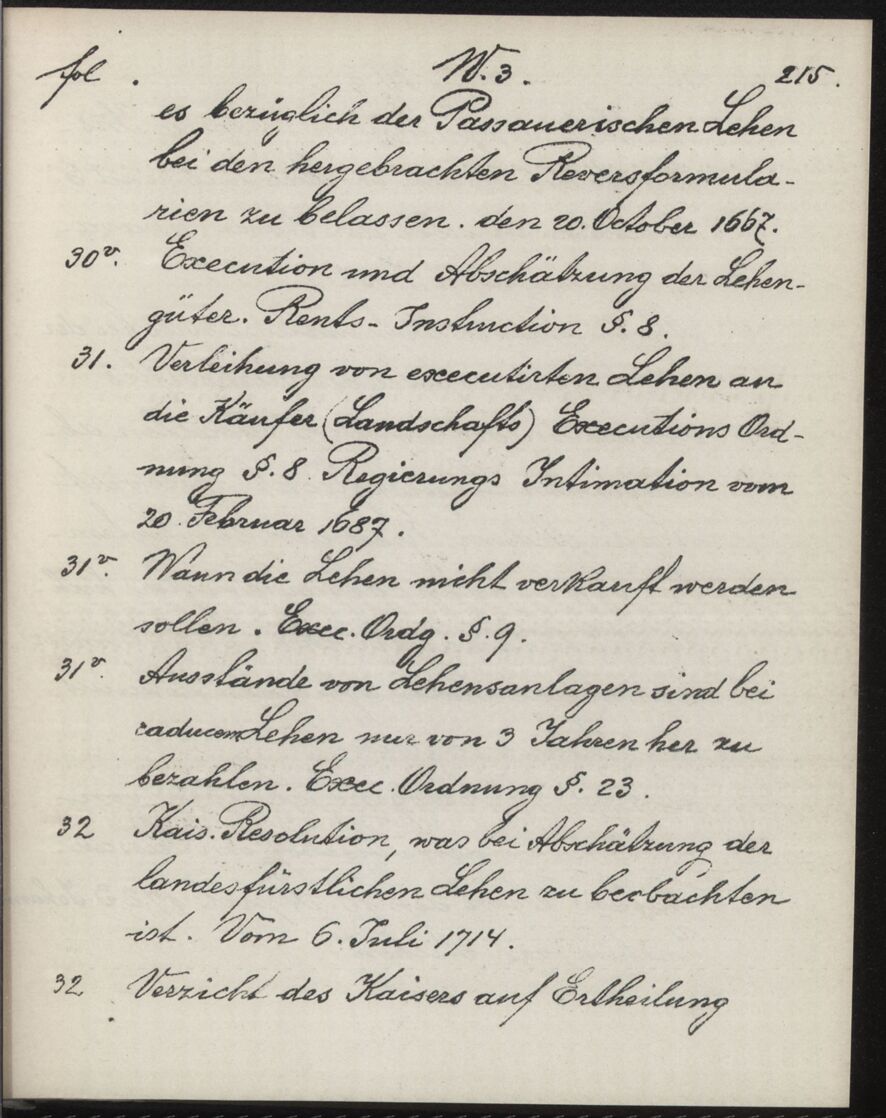 fol. W. 3. 215.
es bezüglich der Passauerischen Lehen
bei den hergebrachten Reversformula-
rien zu belassen. den 20. October 1667.
30v. Execution und Abschätzung der Lehen-
güter. Rents-Instruction §. 8.
31. Verleihung von executirten Lehen an
die Käufer (Landschafts) Executions Ord-
nung §. 8. Regierungs Intimation vom
20. Februar 1687.
31v. Wann die Lehen nicht verkauft werden
sollen. Exec. Ordg. §. 9.
31v. Ausstände von Lehensanlagen sind bei
caducen Lehen nur von 3 Jahren her zu
bezahlen. Exec. Ordnung §. 23.
32 Kais. Resolution, was bei Abschätzung der
landesfürstlichen Lehen zu beobachten
ist. Vom 6. Juli 1714.
32 Verzicht des Kaisers auf Ertheilung